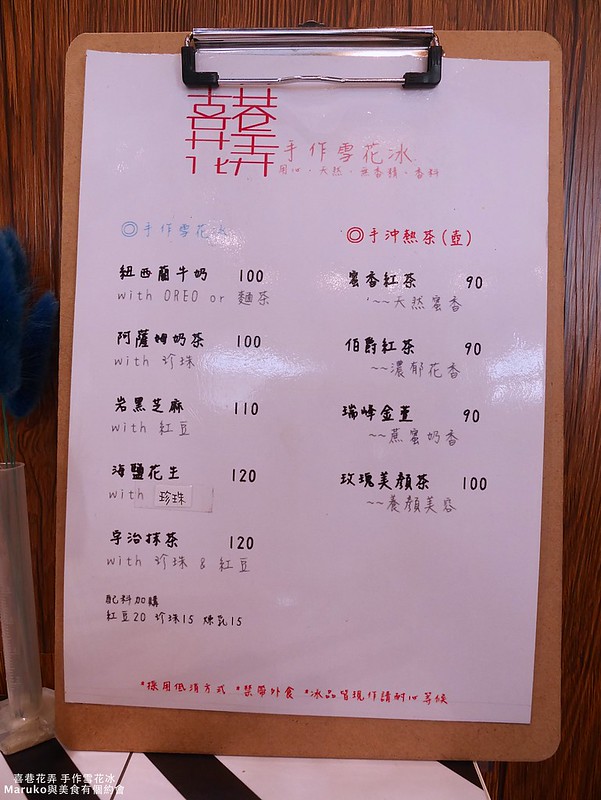 喜巷
花弄
手作雪花冰
用心、天然、無香精、香料
◎手作雪花冰
紐西蘭牛奶 100
with OREO or 麵茶
阿薩姆奶茶 100
with 珍珠
岩黑芝麻 110
with 紅豆
海鹽花生 120
with 珍珠
宇治抹茶 120
with 珍珠 & 紅豆
配料加購
紅豆20 珍珠15 煉乳15
◎手沖熱茶(壺)
蜜香紅茶 90
~~天然蜜香
伯爵紅茶 90
~~濃郁花香
瑞峰金萱 90
~~蔗蜜奶香
玫瑰美顏茶 100
~~養顏美容
*採用低消方式 *禁帶外食 *冰品皆現作請耐心等候
喜巷花弄 手作雪花冰
Maruko與美食有個約會